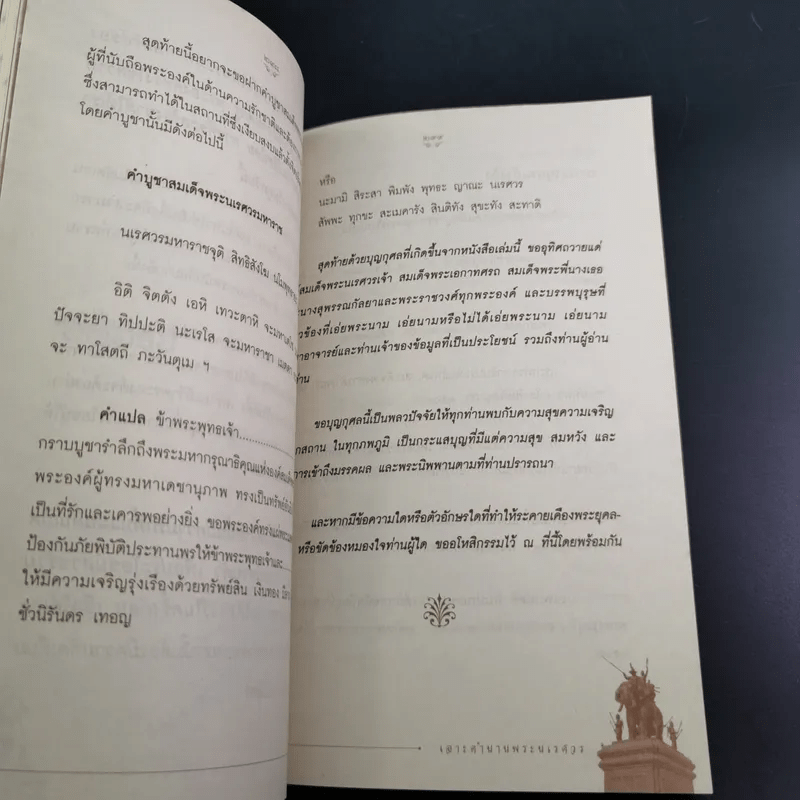 สุดท้ายนี้อยากจะขอฝากคำบูชา
ผู้ที่นับถือพระองค์ในด้านความรักชาติและ
ซึ่งสามารถทำได้ในสถานที่ซึ่งเงียบสงบแล้ว
โดยคำบูชานั้นมีดังต่อไปนี้
คำบูชาสมเด็จพระนเรศวรมหาราช
นเรศวรมหาราชจุติ สิทธิสังโฆ
อิติ จิตตัง เอหิ เทวะตาหิ จะมหาเตโช
ปัจจะยา ทิปปะติ นะเรโส จะมหาราชา
จะ ทาโสตถี ภะวันตุเม ฯ
คำแปล ข้าพระพุทธเจ้า
กราบบูชารำลึกถึงพระมหากรุณาธิคุณแห่งองค์
พระองค์ผู้ทรงมหาเดชานุภาพ ทรงเป็น
เป็นที่รักและเคารพอย่างยิ่ง ขอพระองค์ทรง
ป้องกันภัยพิบัติประทานพรให้ข้าพระพุทธเจ้าและ
ให้มีความเจริญรุ่งเรืองด้วยทรัพย์สิน เงินทอง
ชั่วนิรันดร เทอญ
หรือ
นะมามิ สิระสา พิมพัง พุทธะ ญาณะ นเรศวร
สัพพะ ทุกขะ สะเมคารัง สินติทัง สุขะทัง สะทาติ
สุดท้ายด้วยบุญกุศลที่เกิดขึ้นจากหนังสือเล่มนี้ ขออุทิศถวายแด่
สมเด็จพระนเรศวรเจ้า สมเด็จพระเอกาทศรถ สมเด็จพระพี่นางเธอ
นางสุพรรณกัลยาและพระราชวงศ์ทุกพระองค์ และบรรพบุรุษที่
วข้องที่เอ่ยพระนาม เอ่ยนามหรือไม่ได้เอ่ยพระนาม เอ่ยนาม
าอาจารย์และท่านเจ้าของข้อมูลที่เป็นประโยชน์ รวมถึงท่านผู้อ่าน
ท่าน
ขอบุญกุศลนี้เป็นพลวปัจจัยให้ทุกท่านพบกับความสุขความเจริญ
กสถาน ในทุกภพภูมิ เป็นกระแสบุญที่มีแต่ความสุข สมหวัง และ
การเข้าถึงมรรคผล และพระนิพพานตามที่ท่านปรารถนา
และหากมีข้อความใดหรือตัวอักษรใดที่ทำให้ระคายเคืองพระยุคล-
หรือขัดข้องหมองใจท่านผู้ใด ขออโหสิกรรมไว้ ณ ที่นี้โดยพร้อมกัน
เจาะตำนานพระนเรศวร